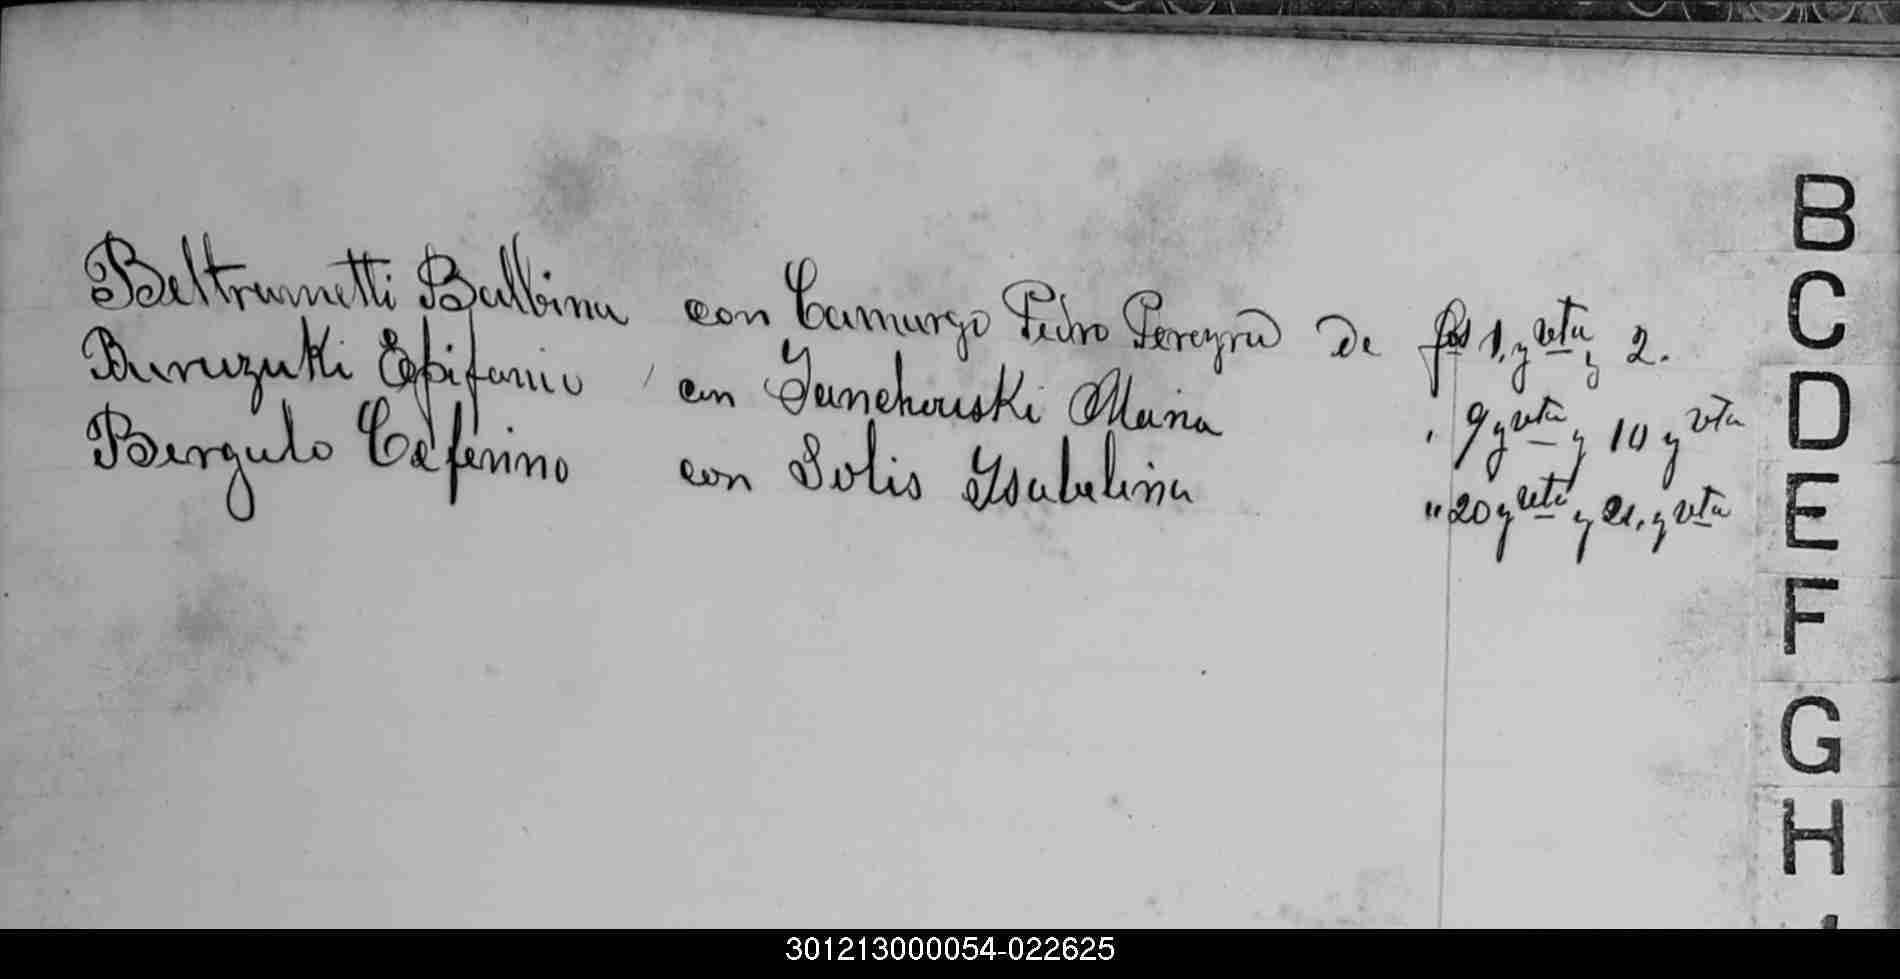 Beltrametti Balbina con Camargo Pedro Pereyra de fos 1. y vta y 2.
Buruzuki Epifanio con Janchouski Maria " 9 y vta y 10 y vta
Bergulo Ceferino con Solis Ysabelina " 20 y vta y 21. y vta
B
C
D
E
F
G
H
301213000054-022625